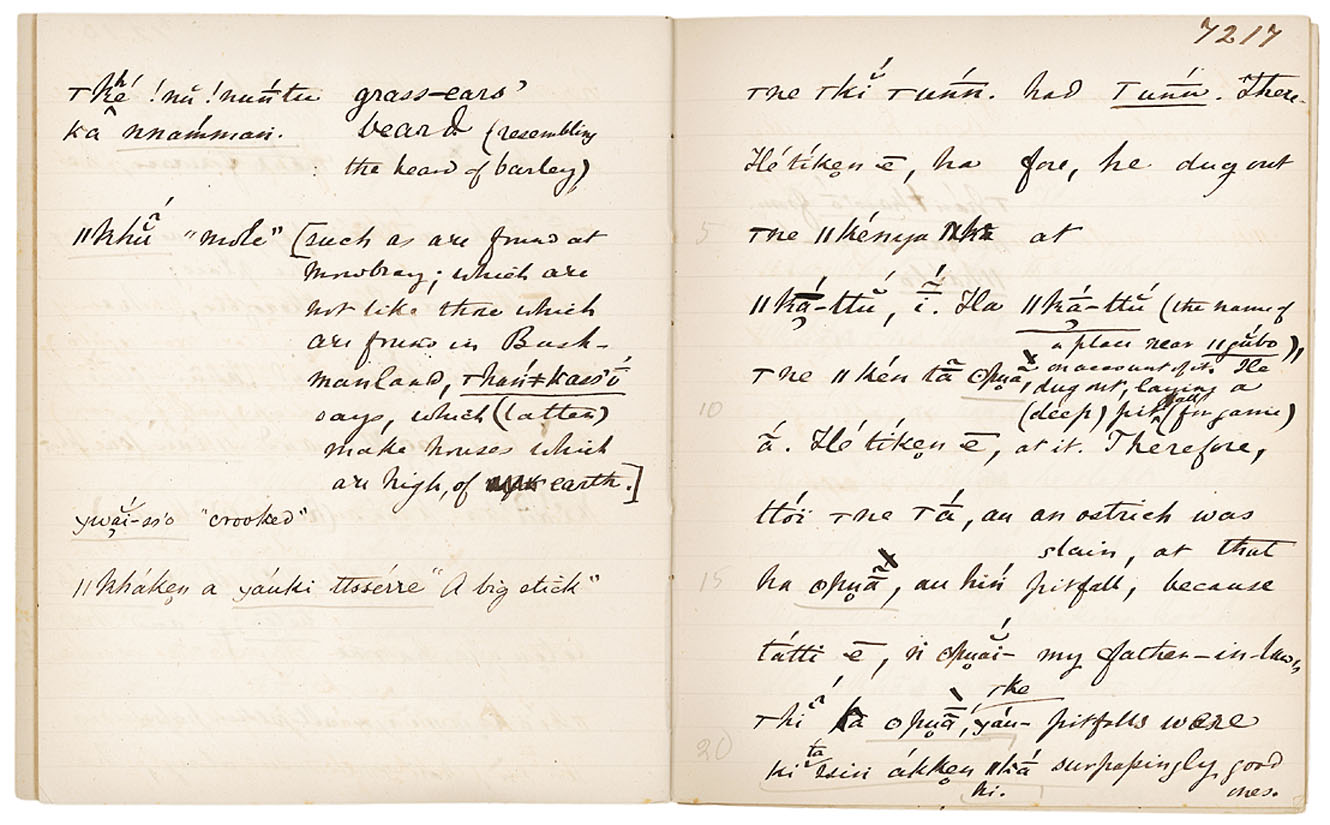 ͳk̂hé !nŭ !nuń̄tu grass-ears'
ka nnámman. beard (resembling
the beard of barley)
ǁkhŭ́ "mole" [such as are found at
Mowbray; which are
not like those which
are found in Bush-
manland, ͳhań≠kass'ō
says, which (latter)
make houses which
are high, of earth.]
ywặ́i-ss'o "crooked"
ǁkháken̥ a yáuki ttssérre "A big stick"
7217
ͳne ͳkĭ́ ͳuń̄ń. had ͳuń̄ń. There-
Hé tíken̥ ē, ha fore, he dug out
5 ͳne ǁkénya at
ǁkā́-ttŭ́, ī́. Ha ǁkā́-ttŭ́ (the name of
a place near ǁgŭ́bo),
ͳne ǁkén tā̃ opuā̃, on account of it. He
dug out, laying a
10 (deep) pitfall (for game)
á. Hé tíken̥ ē, at it. Therefore,
ttói ͳne ͳā́, au an ostrich was
slain, at that
15 ha opuā̃, au hiń pitfall, because
tátti ē, ń opuặ́i- my father-in-law,s
ͳke
ͳhĩ́ ka opuā̃, yáu- pitfalls were
20 ki tā ssin ákken̥ ǁkā́ surpassingly good
ki. ones.